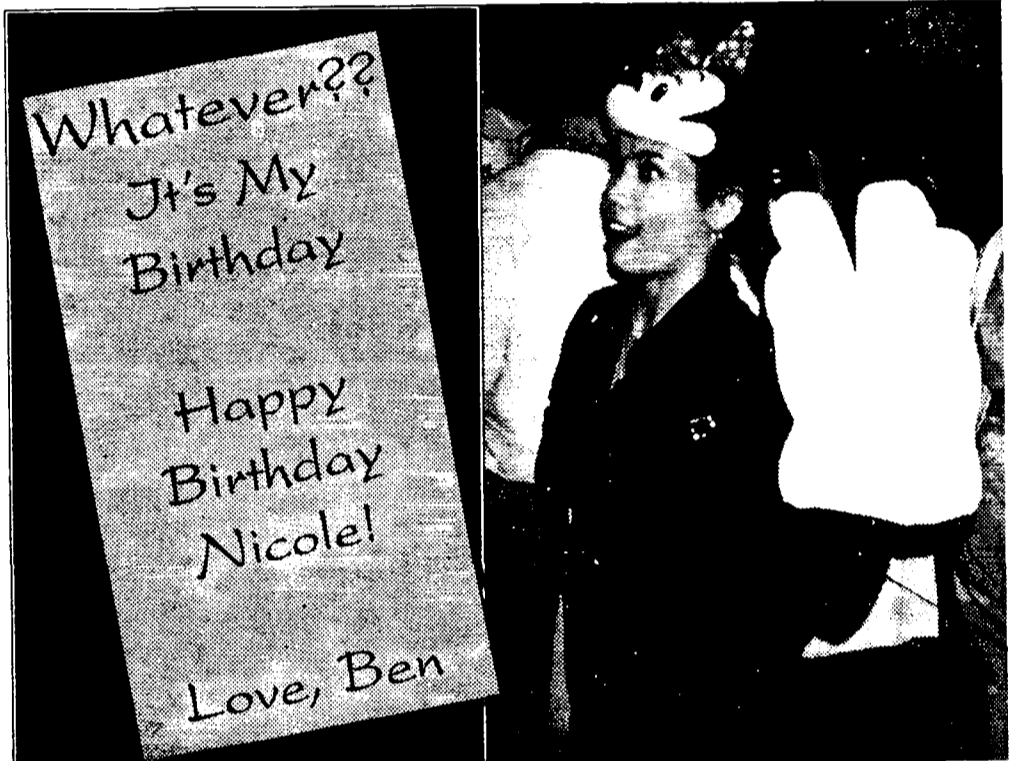 Whatever??
It's My
Birthday
Happy
Birthday
Nicole!
Love, Ben